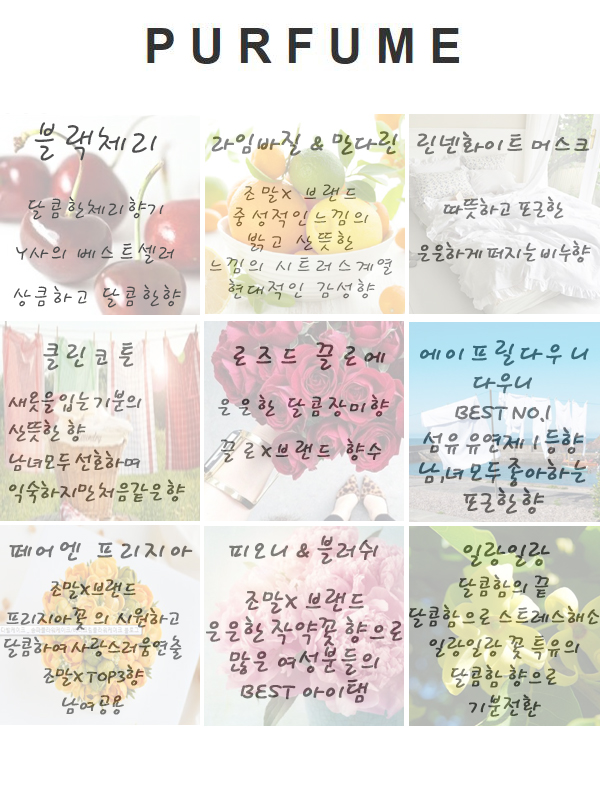 PURFUME
블랙체리
달콤한체리향기
Y사의 베스트셀러
상큼하고 달콤한향
라임바질 & 만다린
조말X 브랜드
중성적인느낌의
밝고 산뜻한
느낌의 시트러스계열
현대적인 감성향
린넨화이트머스크
따뜻하고 포근한
은은하게퍼지는비누향
클린코튼
새옷을입는기분의
산뜻한 향
남녀모두선호하며
익숙하지만처음같은향
로즈드 끌로에
은은한 달콤장미향
끌로X브랜드 향수
에이프릴다우니
다우니
BEST NO,1
섬유유연제1등향
남,녀모두좋아하는
포근한향
페어엔 프리지아
조말X브랜드
프리지아꽃의 시원하고
달콤하여사랑스러움연출
조말XTOP3향
남여공용
피오니&블러쉬
조말X 브랜드
은은한작약꽃향으로
많은 여성분들의
BEST 아이탬
일랑일랑
달콤함의 끝
달콤함으로 스트레스해소
일랑일랑 꽃특유의
달콤함향으로
기분전환